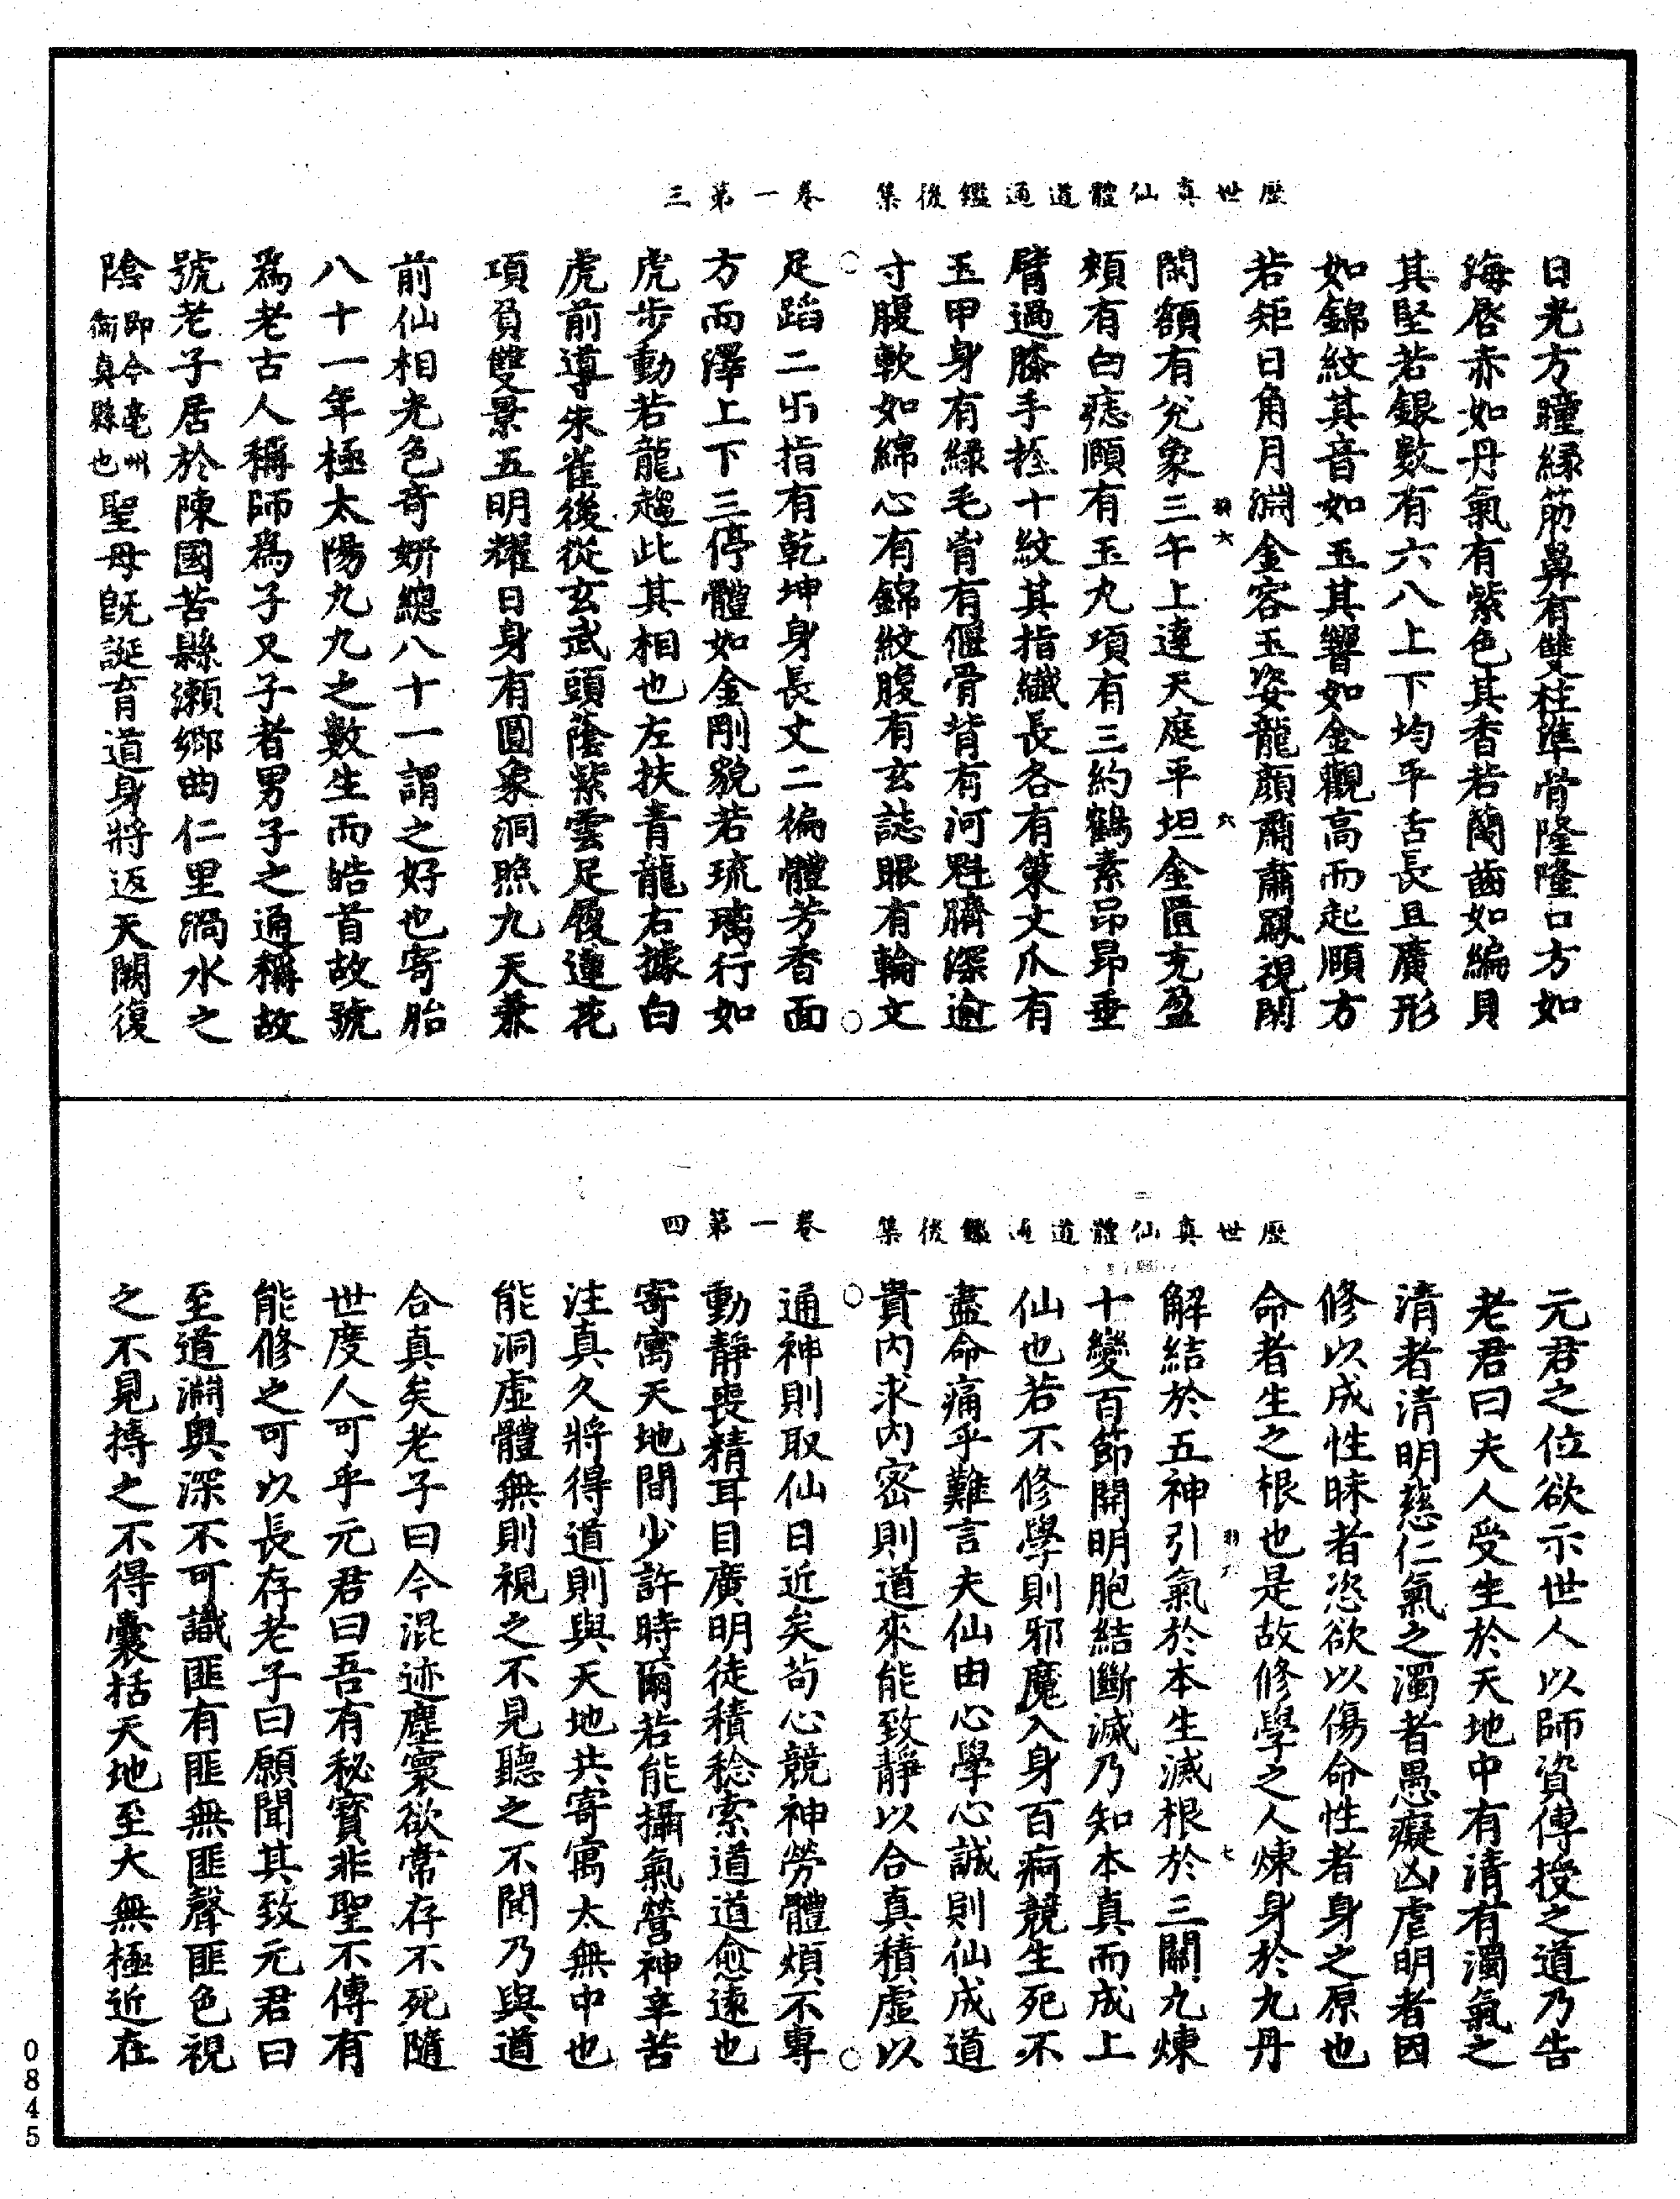 歷世真仙體道通鑑後集　卷一第三
日光方瞳綠筋鼻有雙柱準骨隆隆口方如
海唇赤如丹氣有紫色其香若蘭齒如編貝
其堅若銀數有六八上下均平舌長且廣形
如錦紋其音如玉其響如金觀高而起頤方
若矩日角月淵金容玉姿龍顏肅肅鳳視閑
羽六　六
閑額有兌象三午上達天庭平坦金匱充盈
頰有白痣頤有玉丸項有三約鶴素昂昂垂
臂過膝手握十紋其指纖長各有策文爪有
玉甲身有綠毛胷有偃骨背有河魁臍深逾
寸腹軟如綿心有錦紋腹有玄誌眼有輪文
足蹈二卍指有乾坤身長丈二徧體芳香面
方而澤上下三停體如金剛貌若琉璃行如
虎步動若龍趨此其相也左扶青龍右據白
虎前導朱雀後從玄武頭蔭紫雲足履蓮花
項負雙景五明耀日身有圓象洞照九天兼
前仙相光色奇妍總八十一謂之好也寄胎
八十一年極太陽九九之數生而皓首故號
為老古人稱師為子又子者男子之通稱故
號老子居於陳國苦縣瀨鄉曲仁里渦水之
陰即今亳州衛真縣也聖母既誕育道身將返天闕復
歷世真仙體道通鑑後集　卷一第四
元君之位欲示世人以師資傳授之道乃告
老君曰夫人受生於天地中有清有濁氣之
清者清明慈仁氣之濁者愚癡凶虐明者因
修以成性昧者恣欲以傷命性者身之原也
命者生之根也是故修學之人煉身於九丹
七
解結於五神引氣於本生滅根於三關九煉
十變百節開明胞結斷滅乃知本真而成上
仙也若不修學則邪魔入身百痾競生死不
盡命痛乎難言夫仙由心學心誠則仙成道
貴內求內密則道來能致靜以合真積虛以
通神則取仙日近矣苟心競神勞體煩不專
動靜喪精耳目廣明徒積稔索道道愈遠也
寄寓天地間少許時爾若能攝氣營神辛苦
注真久將得道則與天地共寄寓太無中也
能洞虛體無則視之不見聽之不聞乃與道
合真矣老子曰今混迹塵寰欲常存不死隨
世度人可乎元君曰吾有秘寶非聖不傳有
能修之可以長存老子曰願聞其致元君曰
至道淵奧深不可識匪有匪無匪聲匪色視
之不見摶之不得囊括天地至大無極近在
0845